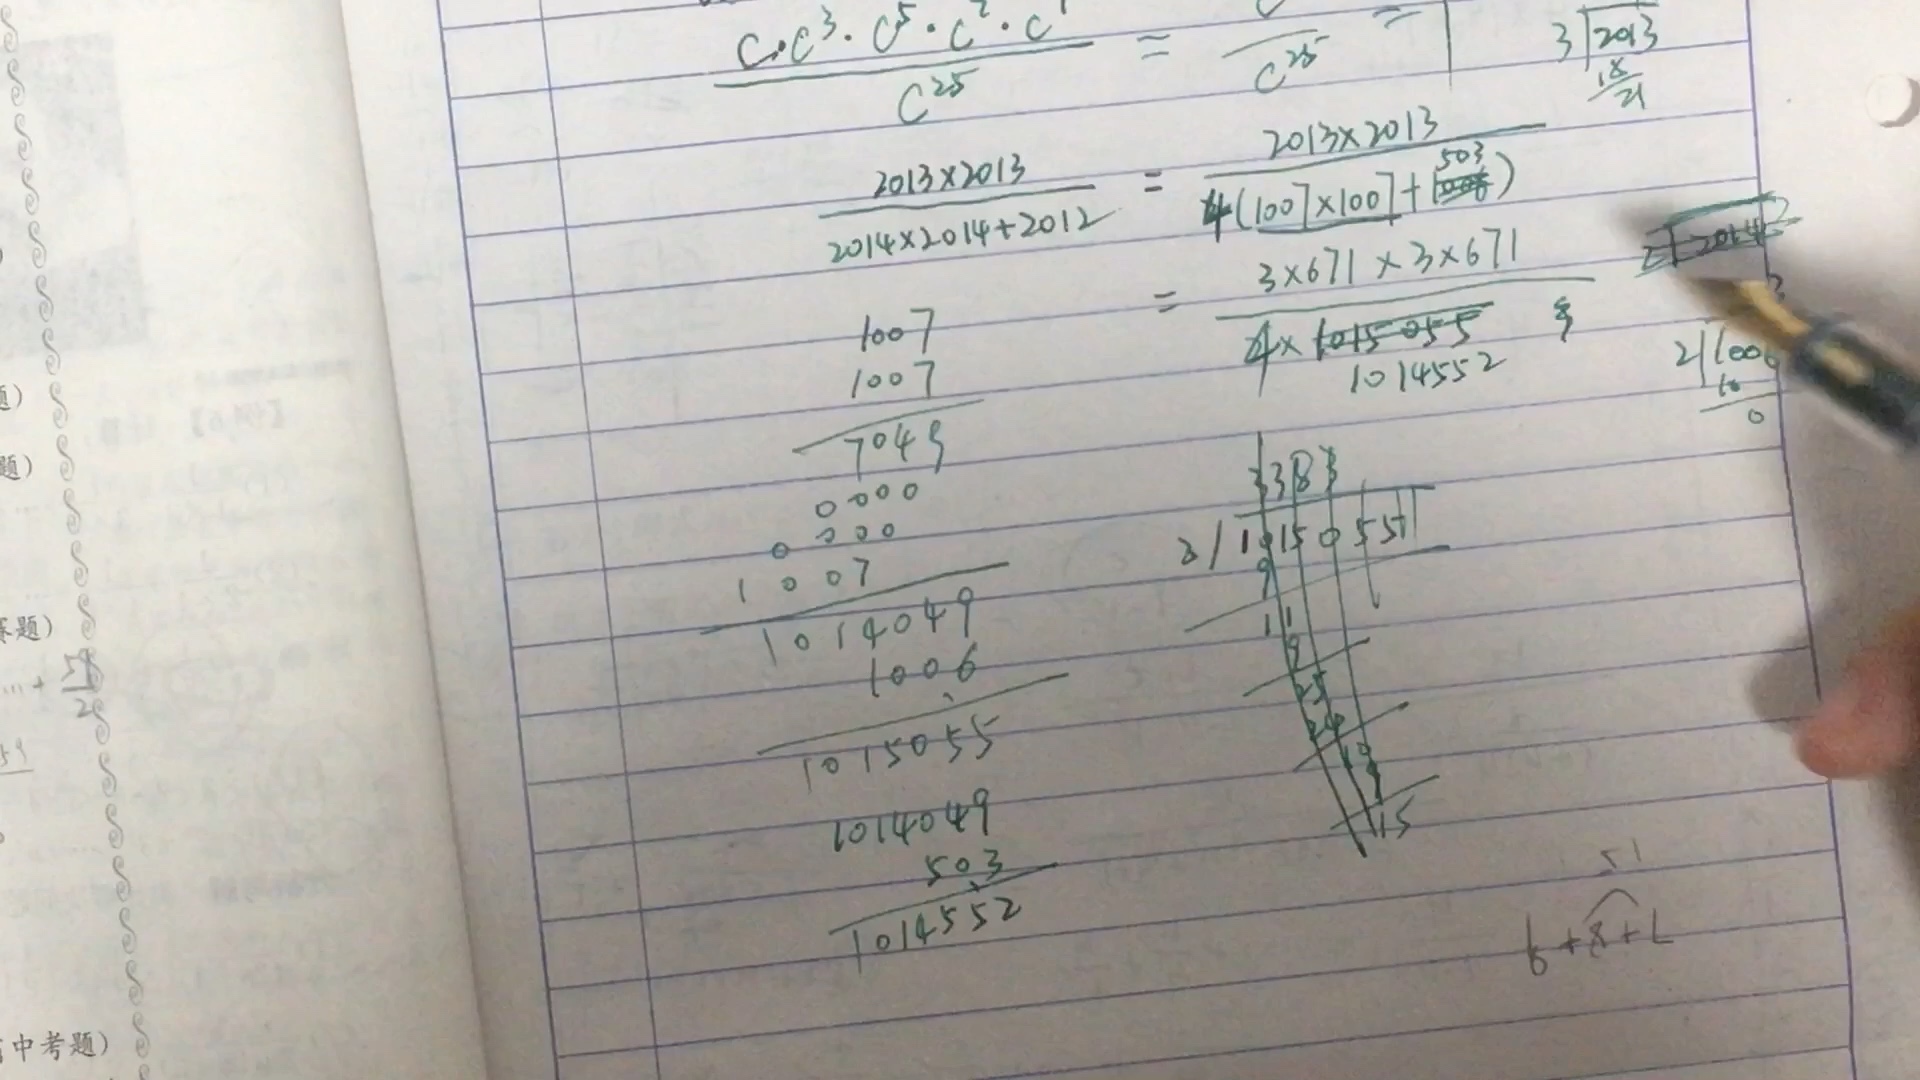 C·C³·C⁵·C²·C
C²⁵
=
C²⁵
=
3 2013
18
21
2013×2013
2014×2014+2012
=
2013×2013
4(1007×1007+503)
=
3×671×3×671
4×1015055
1014552
2 1006
10
0
1007
1007
7049
0000
0000
1007
1014049
1006
1015055
1014049
503
1014552
3383
3 1015055
9
11
9
25
24
10
9
15
题)
题)
题)
中考题)